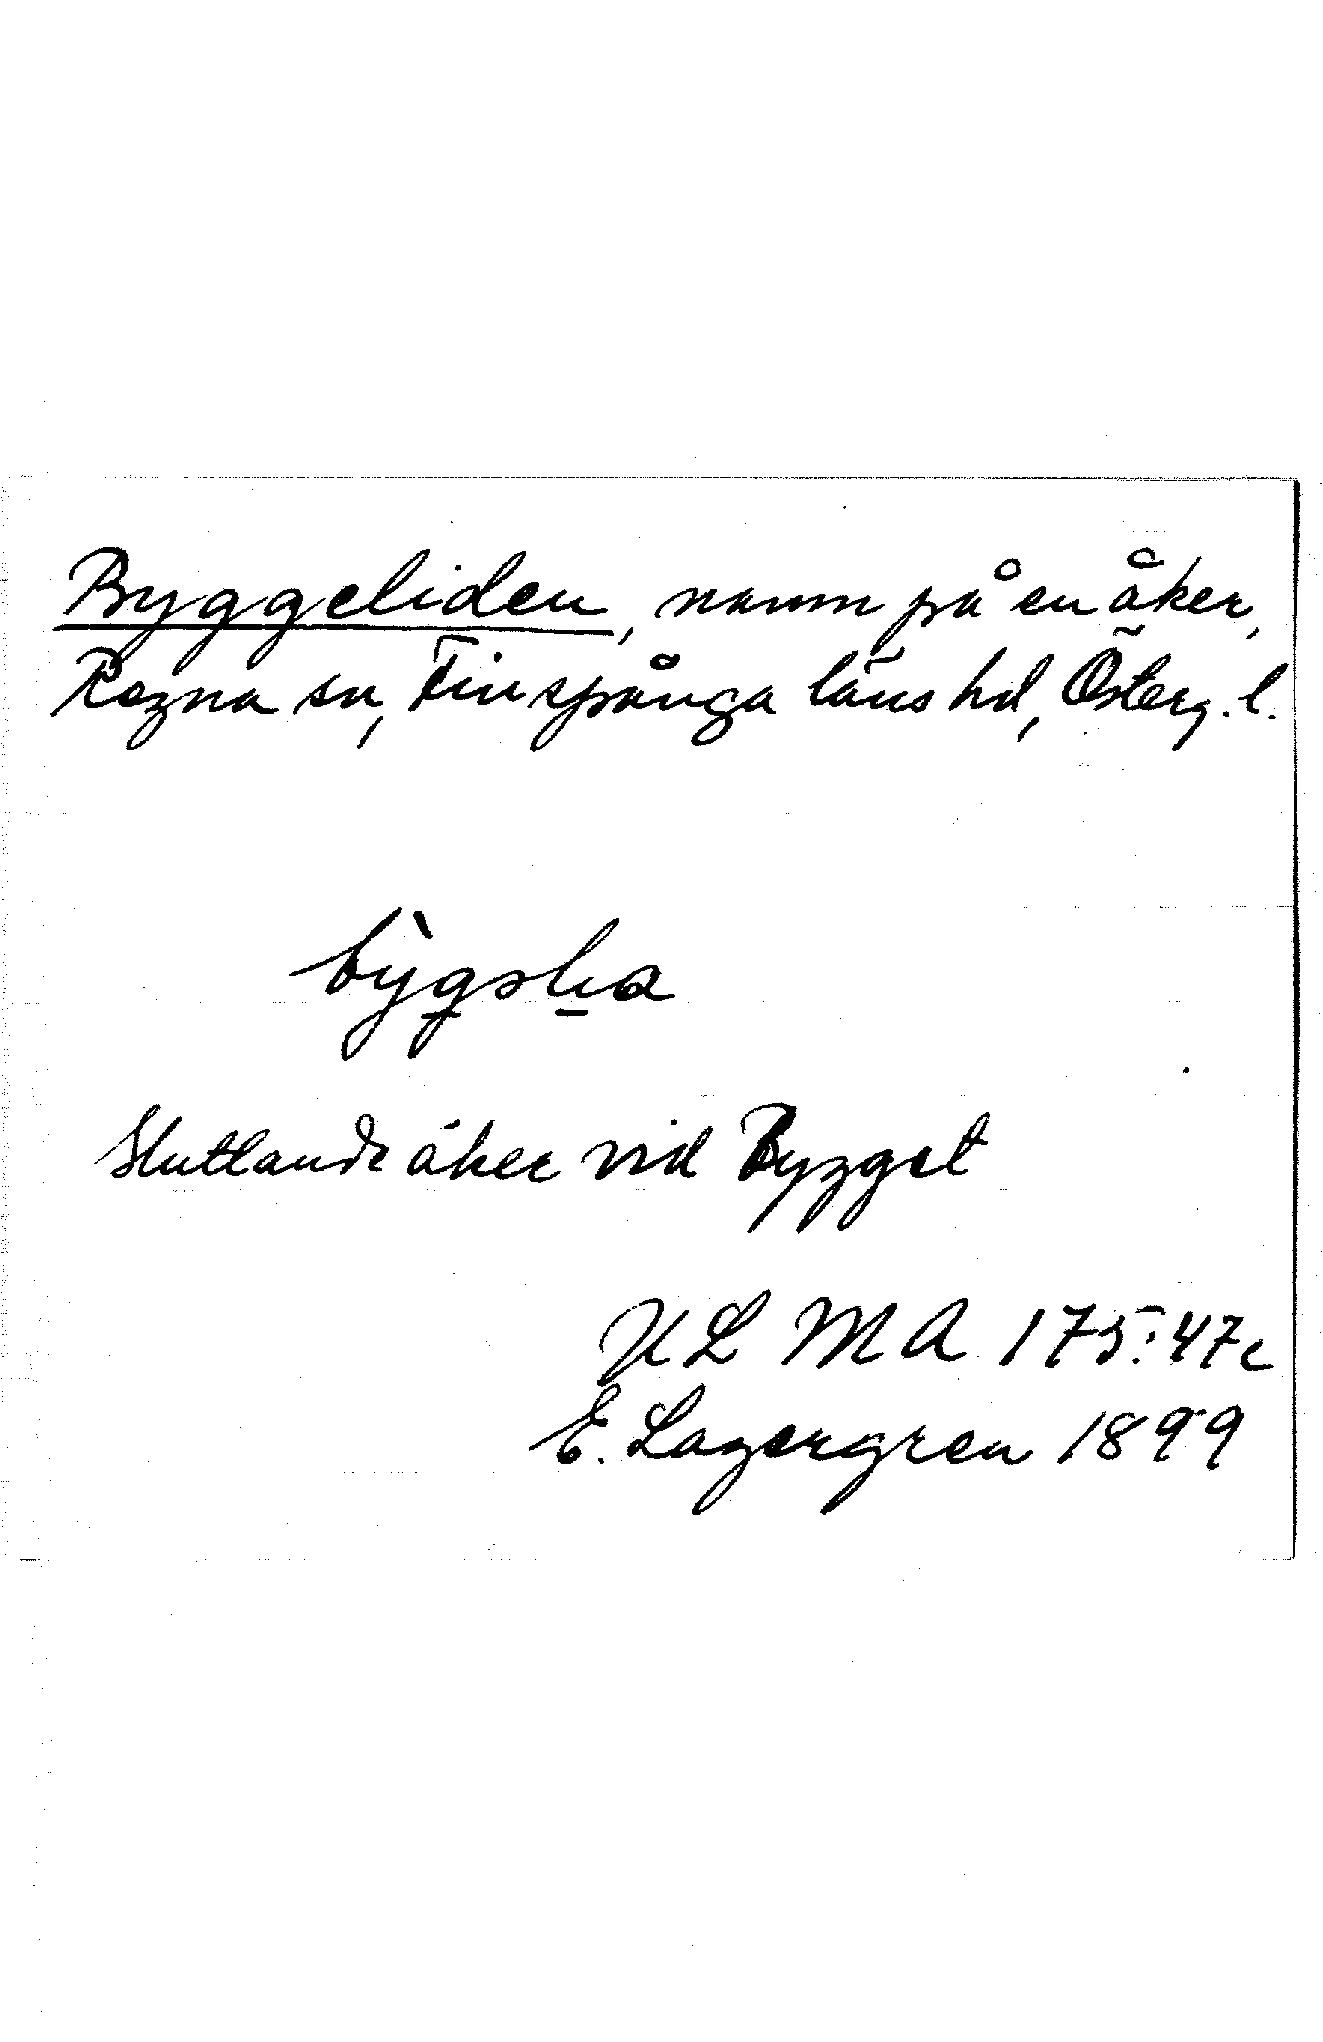 Byggeliden, namn på en åker,
Regna sn, Finspånga läns hd, Österg. l.
Sluttande åker vid Bygget
ULMA 175:47c
E. Lagergren 1899